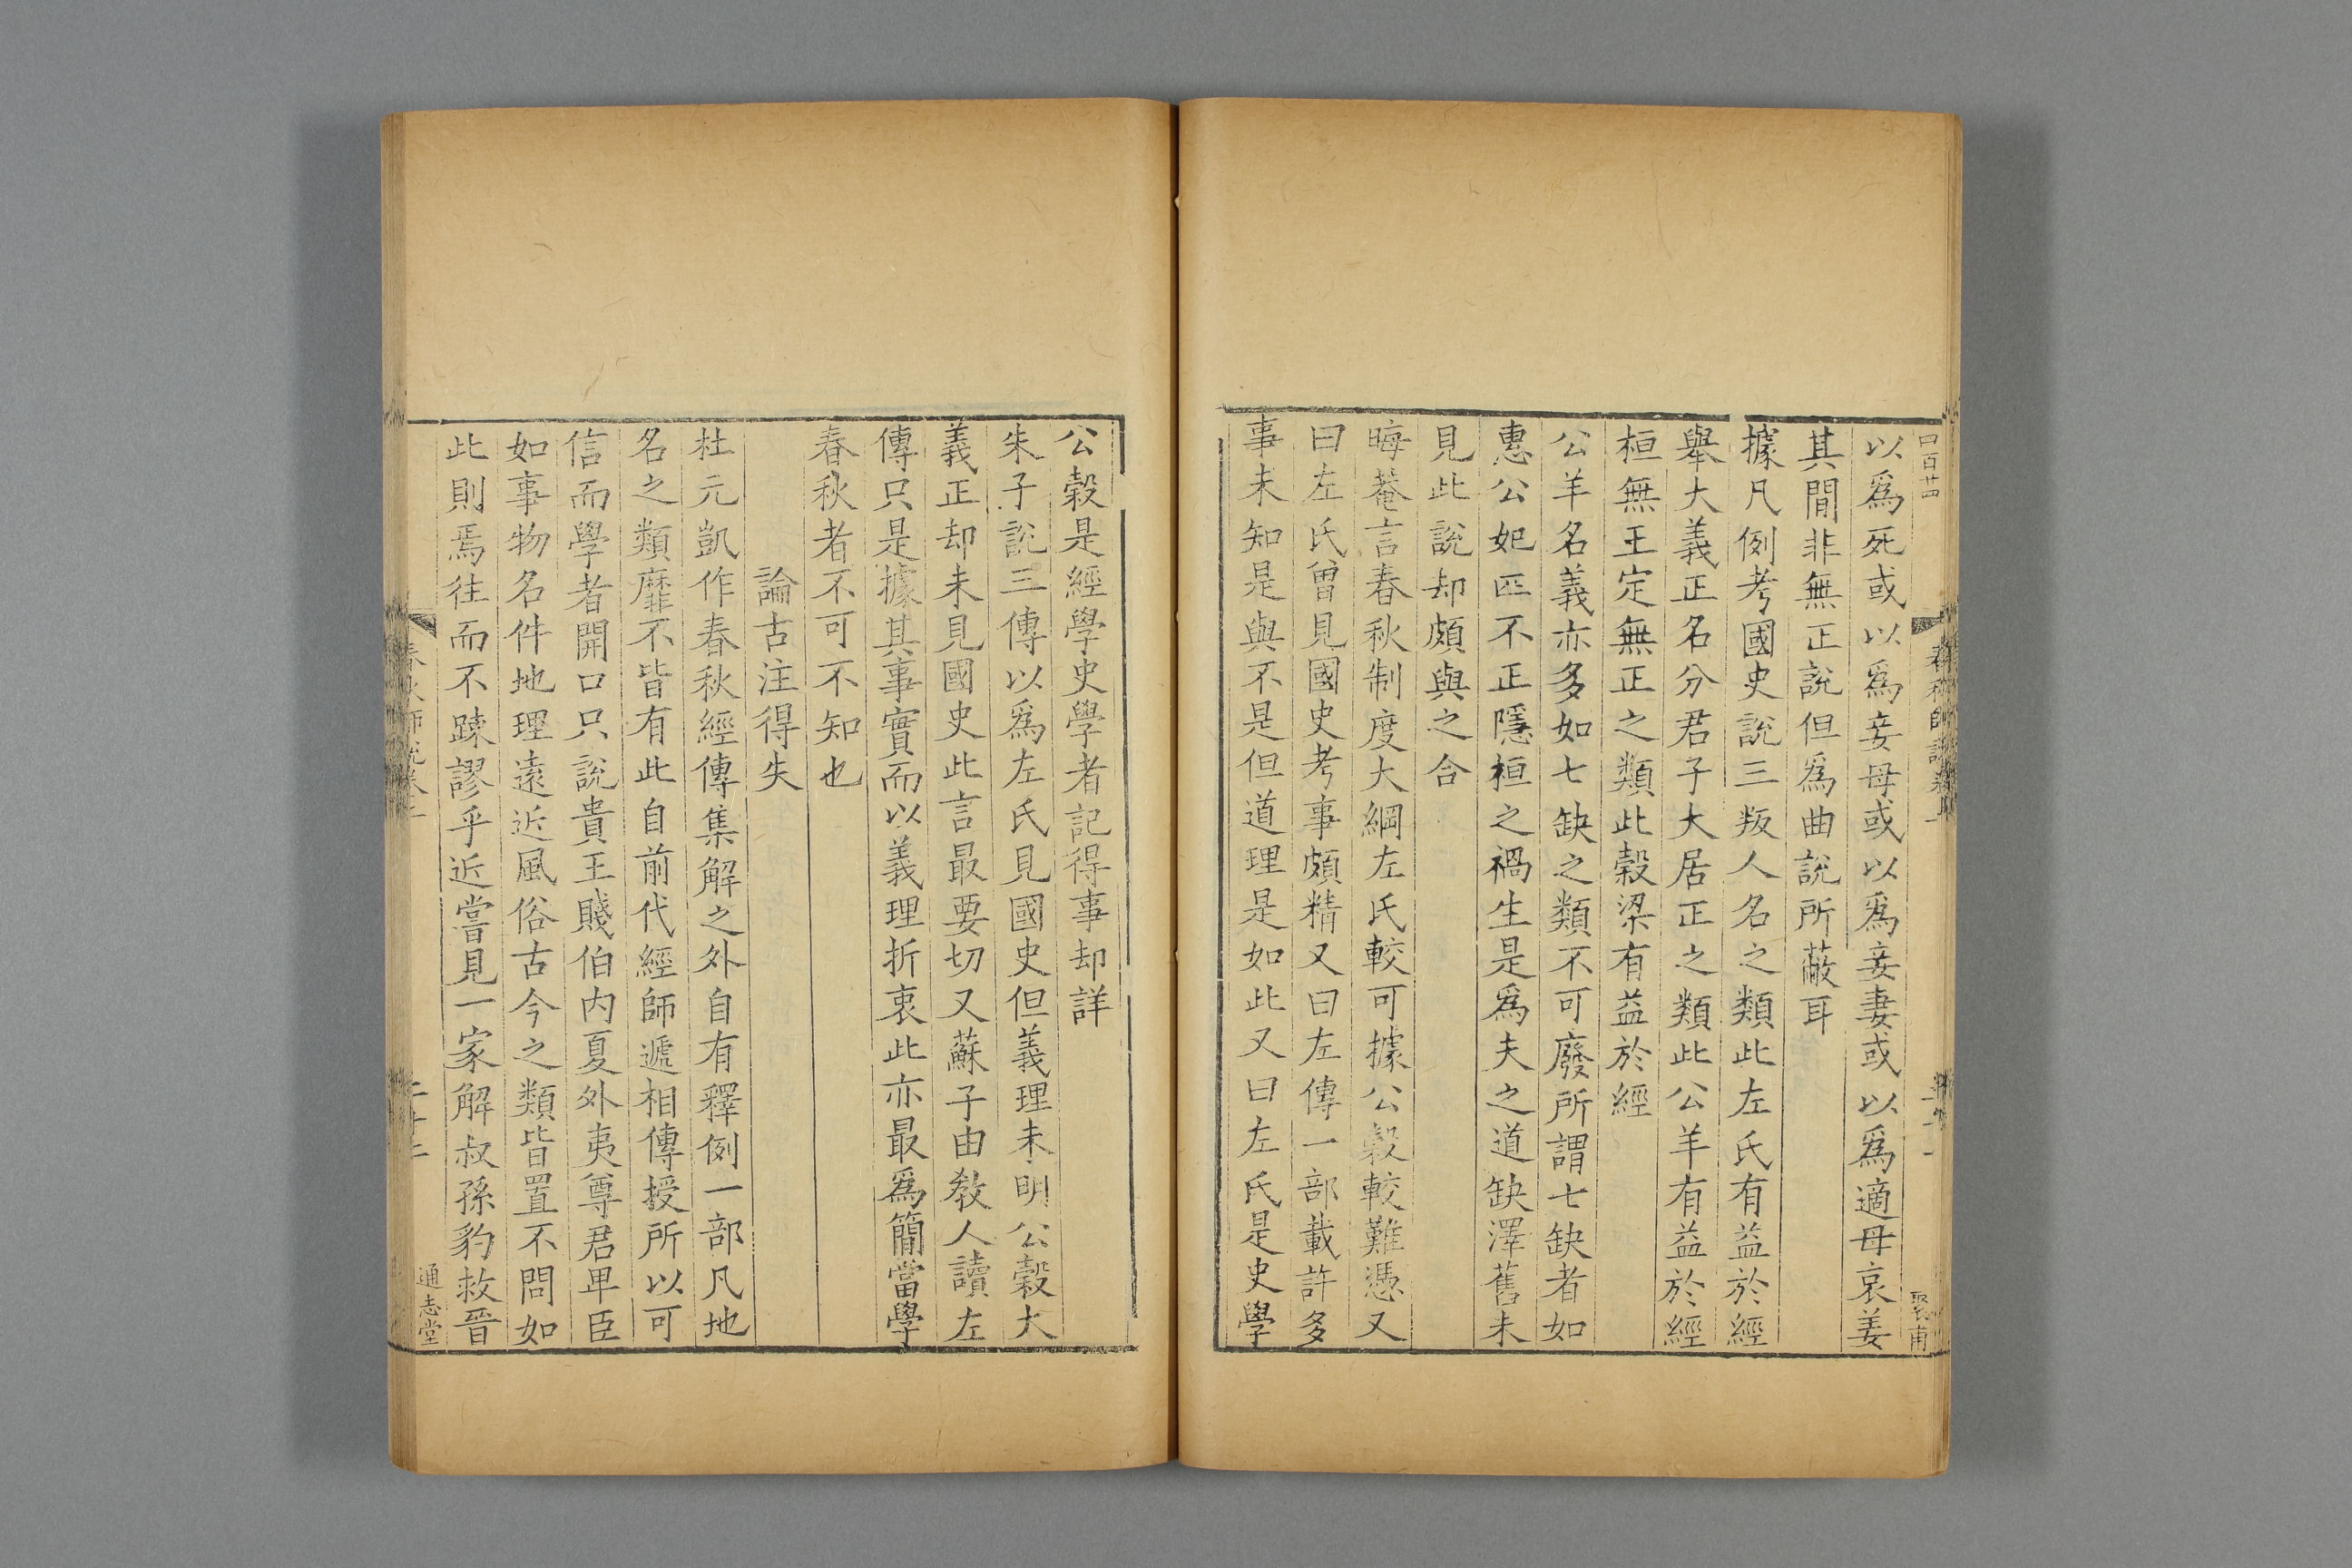 四百廿四
以爲死或以爲妾母或以爲妾妻或以爲適母哀姜
其間非無正說但爲曲說所蔽耳
據凡例考國史說三叛人名之類此左氏有益於經
舉大義正名分君子大居正之類此公羊有益於經
桓無王定無正之類此穀梁有益於經
公羊名義亦多如七缺之類不可廢所謂七缺者如
惠公妃匹不正隱桓之禍生是爲夫之道缺澤舊未
見此說却頗與之合
晦菴言春秋制度大綱左氏較可據公穀較難憑又
曰左氏曾見國史考事頗精又曰左傳一部載許多
事未知是與不是但道理是如此又曰左氏是史學
公穀是經學史學者記得事却詳
朱子說三傳以爲左氏見國史但義理未明公穀大
義正却未見國史此言最要切又蘇子由教人讀左
傳只是據其事實而以義理折衷此亦最爲簡當學
春秋者不可不知也
論古注得失
杜元凱作春秋經傳集解之外自有釋例一部凡地
名之類靡不皆有此自前代經師遞相傳授所以可
信而學者開口只說貴王賤伯内夏外夷尊君卑臣
如事物名件地理遠近風俗古今之類皆置不問如
此則焉往而不踈謬乎近嘗見一家解叔孫豹救晉
春秋師說卷
通志堂